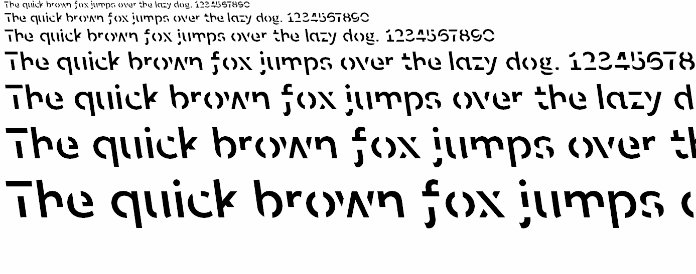 The quick brown fox jumps over the lazy dog. 1234567890
The quick brown fox jumps over the lazy dog. 1234567890
The quick brown fox jumps over the lazy dog. 1234567890
The quick brown fox jumps over the lazy dog. 12345678
The quick brown fox jumps over the lazy d
The quick brown fox jumps over th
The quick brown fox jumps o